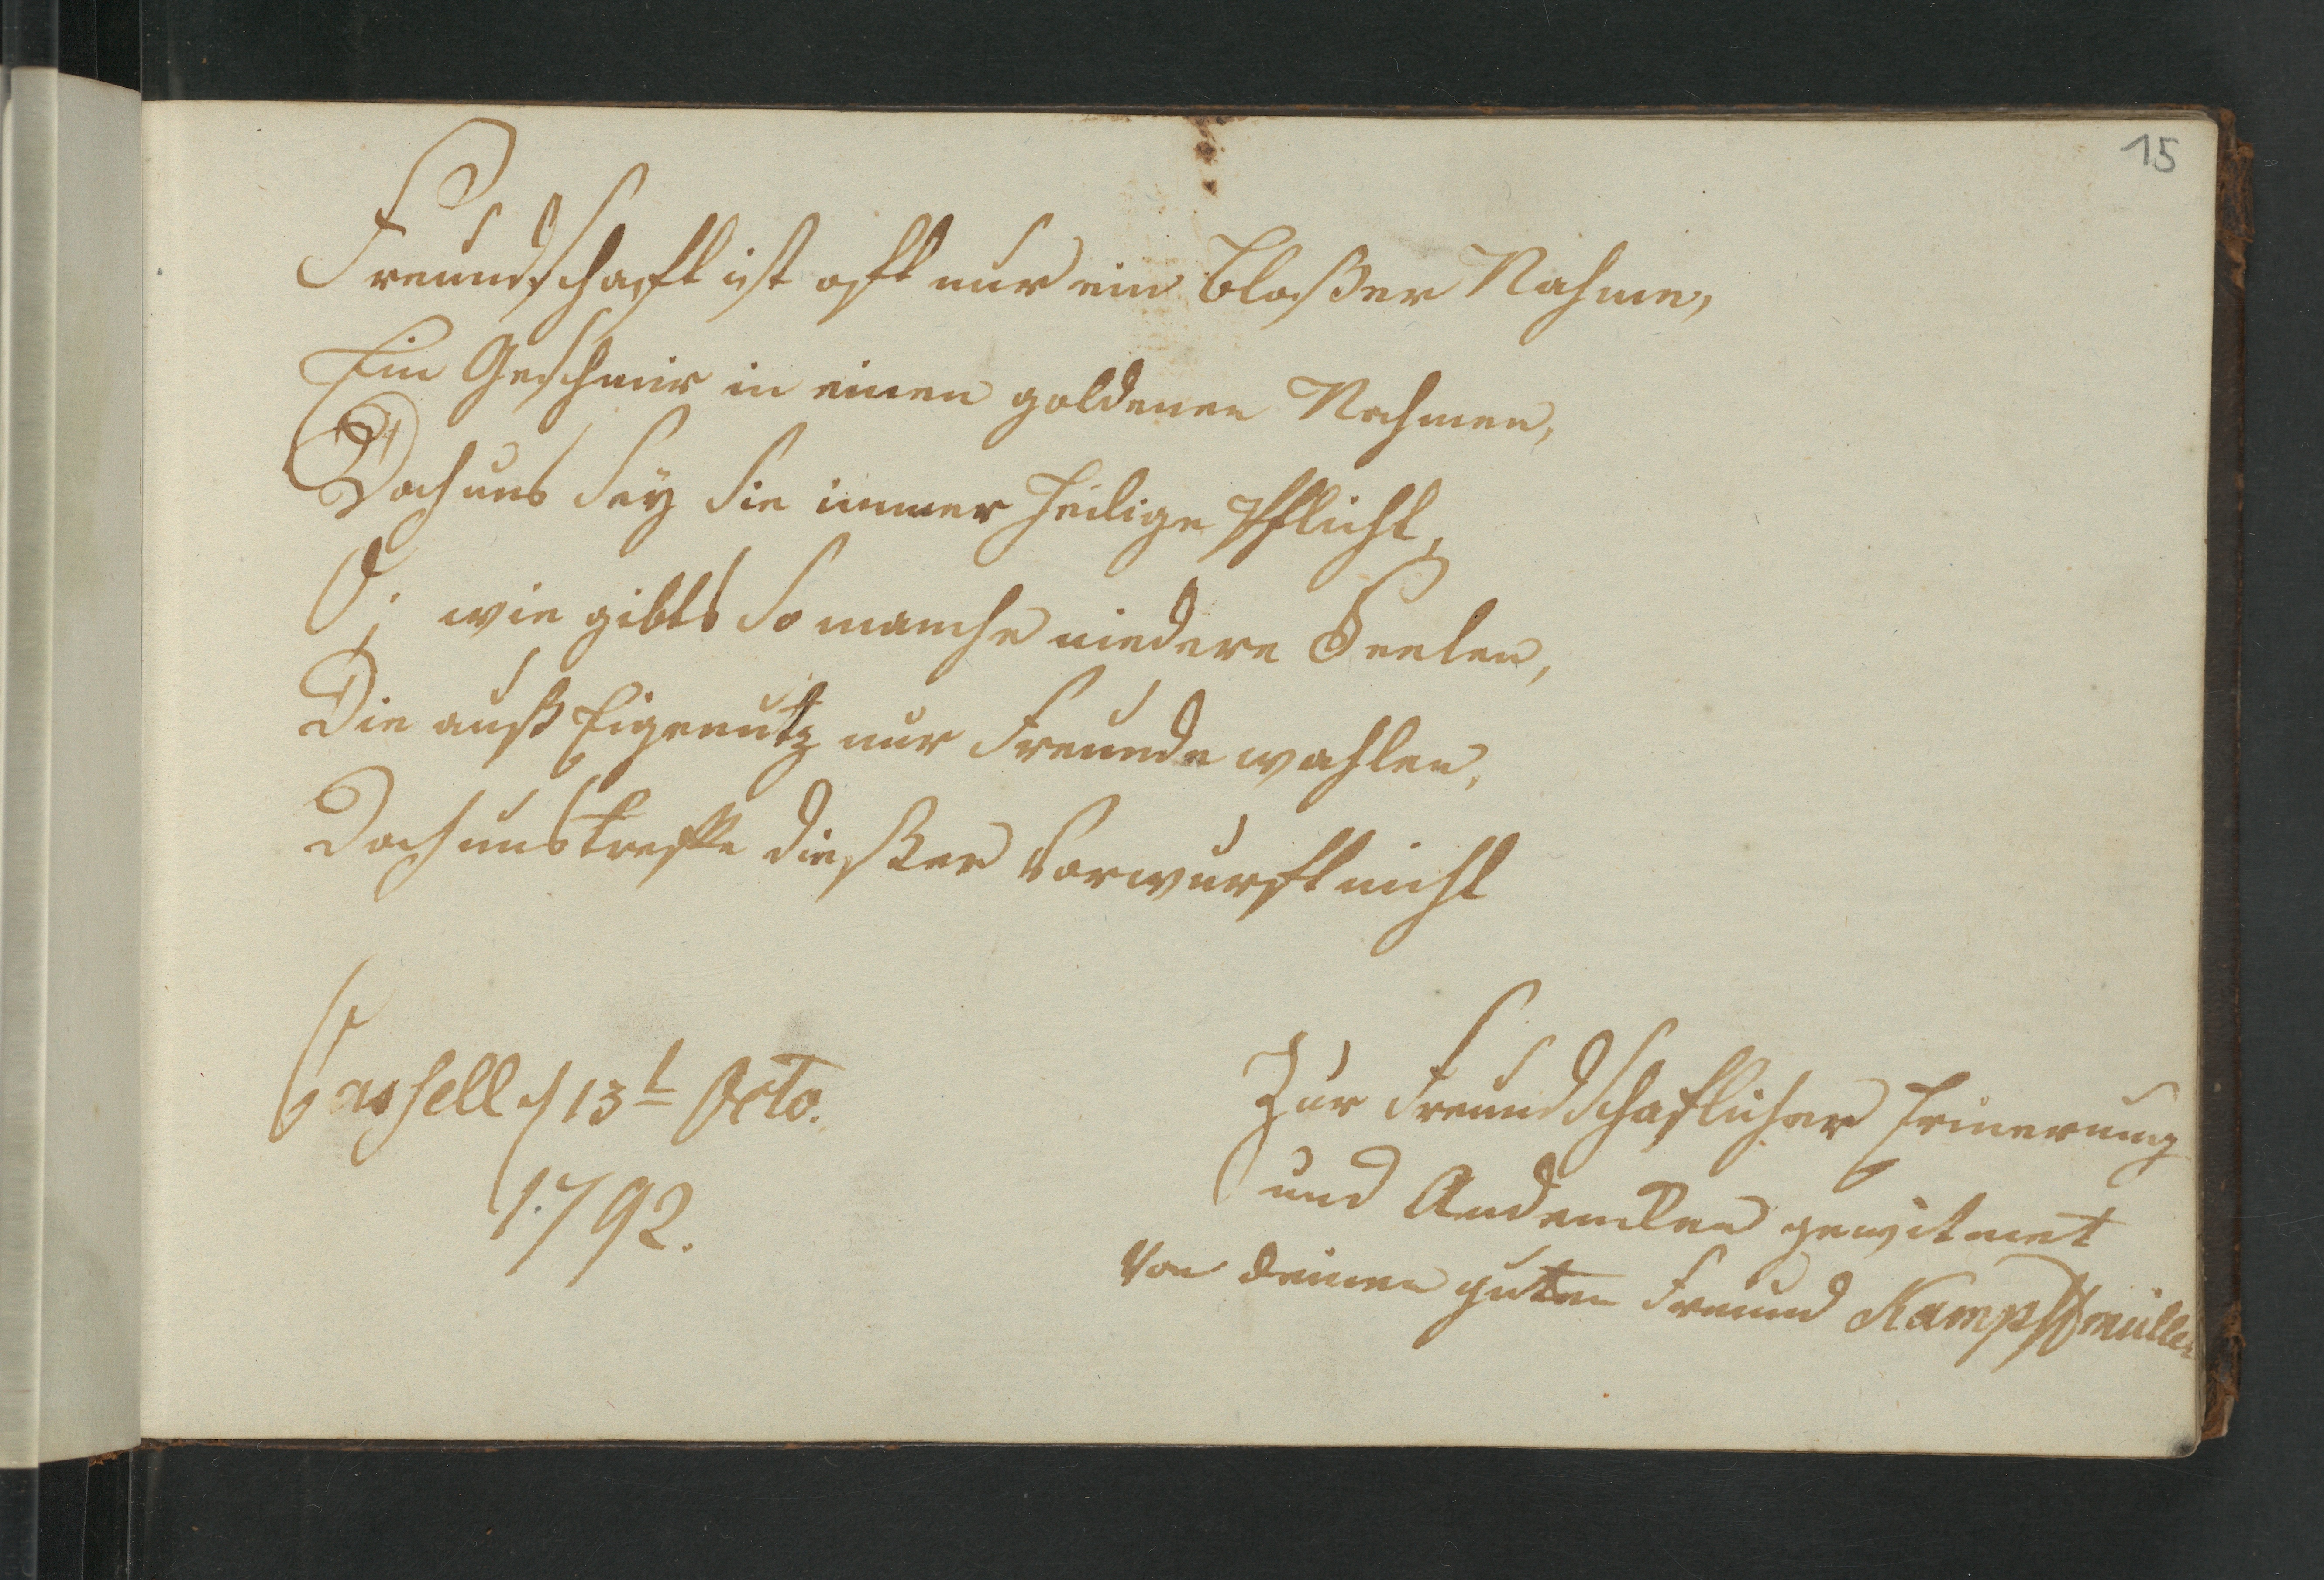 15
Freundschafft ist offt nur ein bloßer Nahme,
Ein Geschmir in einen goldenen Rahmen,
Doch uns sey sie immer heilige Pflicht,
O! wie gibts so manche niedere Seelen,
Die auß Eigenutz nur Freunde wahlen,
Doch uns treffe dießer Vorwurft nicht
Cassell d 13t Octo.
1792.
Zur Freundschaflicher Erinerung
und Andencken gewitmet
Von deinen guten Freund Kampffmüller